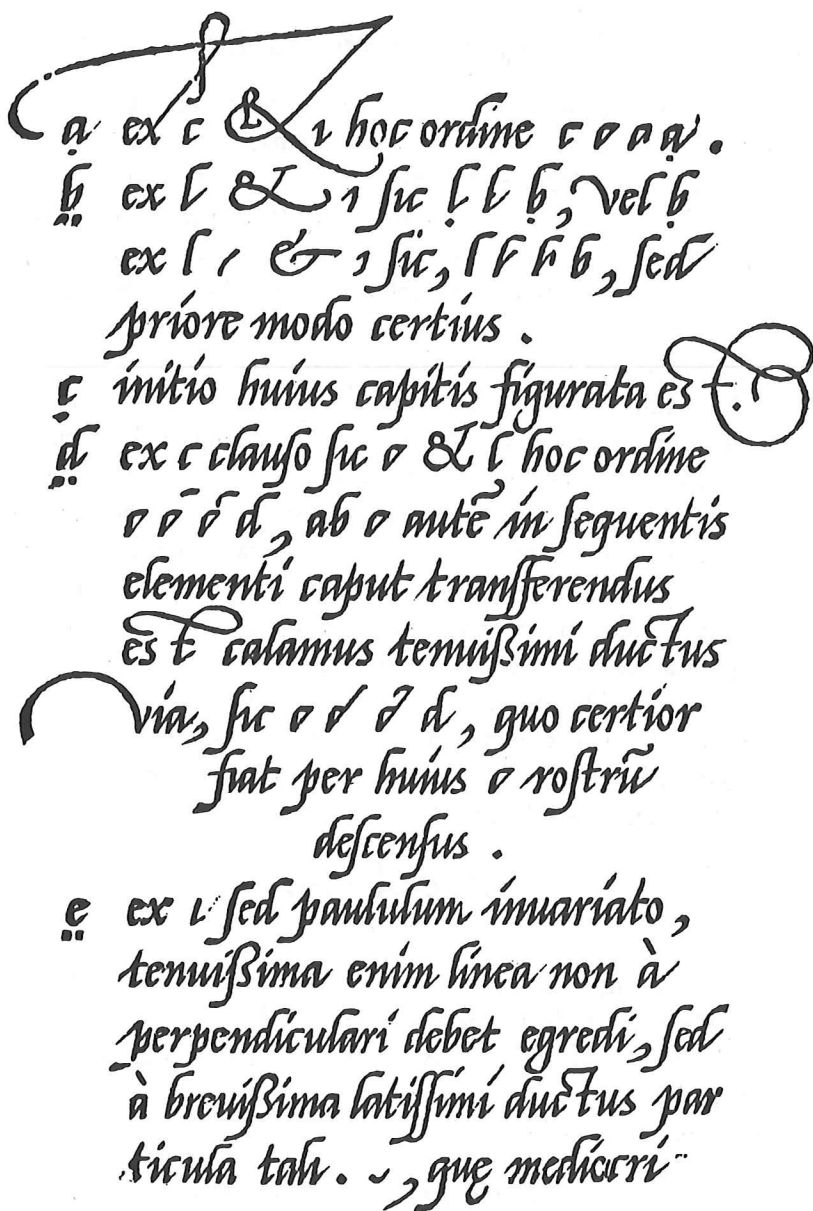 a ex c & ı hoc ordine c o a a .
b ex l & ı sic l l b, vel b
ex l ‑ & ı sic, l l h b, sed
priore modo certius .
c initio huius capitis figurata est.
d ex c clauso sic o & l hoc ordine
o o o d, ab o autē in sequentis
elementi caput transferendus
est calamus tenuißimi ductus
via, sic o o o d, quo certior
fiat per huius o rostrū
descensus .
e ex ı sed paululum inuariato,
tenuißima enim linea non à
perpendiculari debet egredi, sed
à breuißima latissimi ductus par
ticula tali. ~, quę mediocri